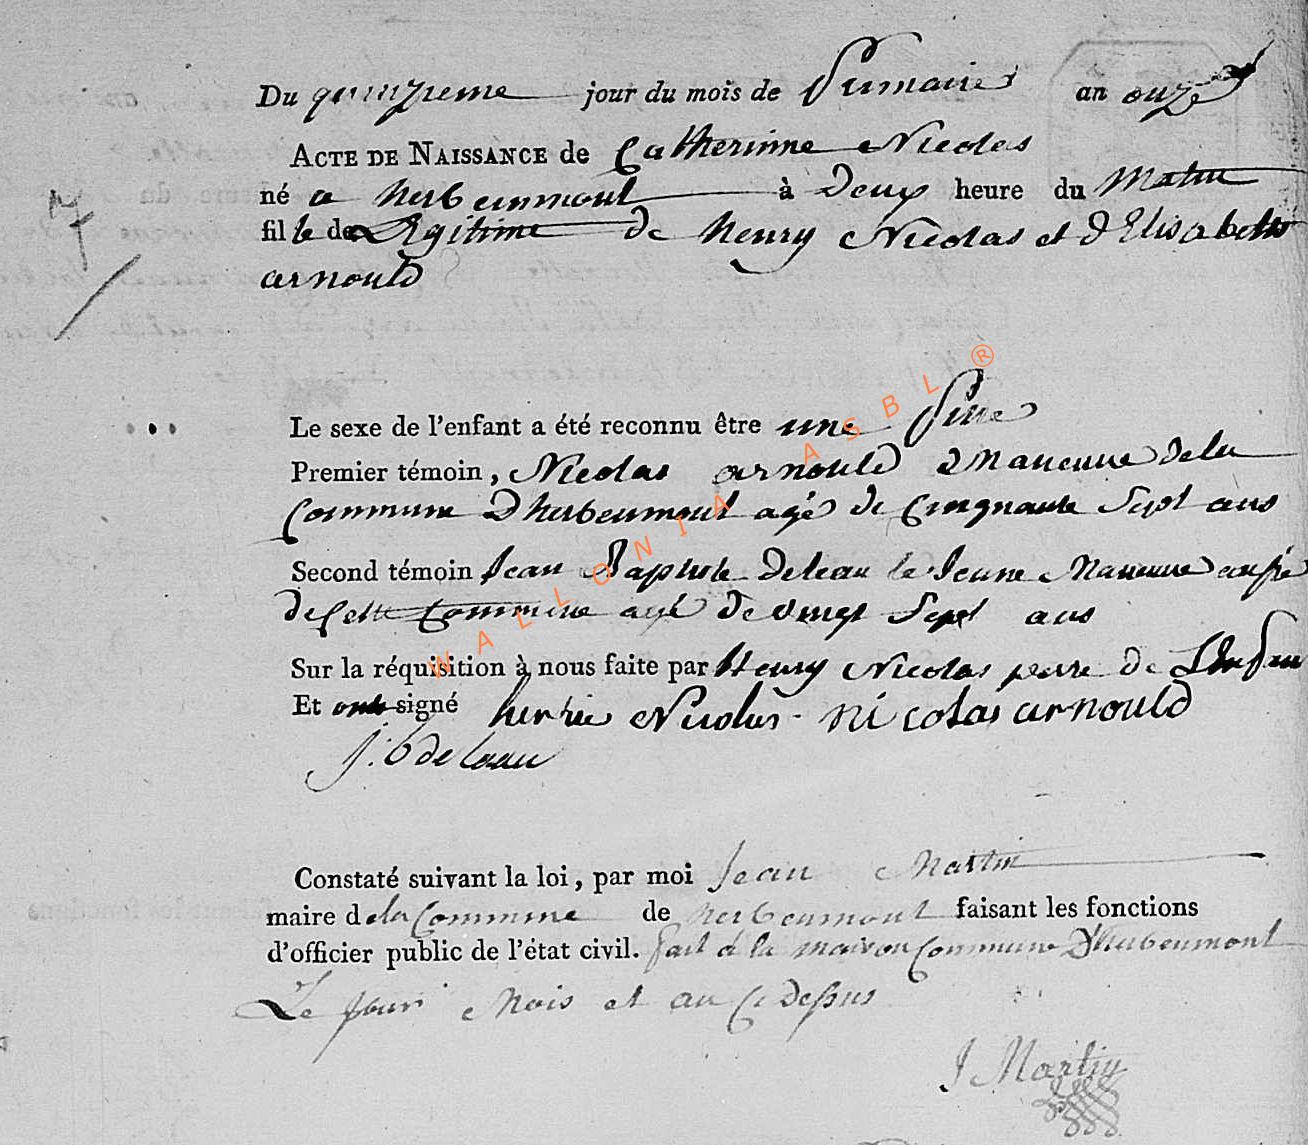 Du quinzieme jour du mois de Frimaire an onze
ACTE DE NAISSANCE de Catherinne Nicolas
né a herbeumont à deux heure du Matin
fille de Legitime de henry Nicolas et d'Elisabette
7
arnould
Le sexe de l'enfant a été reconnu être une fille
Premier témoin, Nicolas arnould Maneuvre dela
Commune D'herbeumont agé de Cinquante Sept ans
Second témoin Jean Baptiste Deleau le Jeune Maneuvre aussi
de Cette Commune agé de vingt Sept ans
Sur la réquisition à nous faite par Henry Nicolas perre de L'Enfan
Et ont signé henri Nicolas nicolas arnould
J:b deleau
Constaté suivant la loi, par moi Jean Martin
maire dela Commune de herbeumont faisant les fonctions
d'officier public de l'état civil. fait a la maison Commune D'herbeumont
Le jour Mois et an Ci dessus
J Martin
WALLONIA ASBL ®